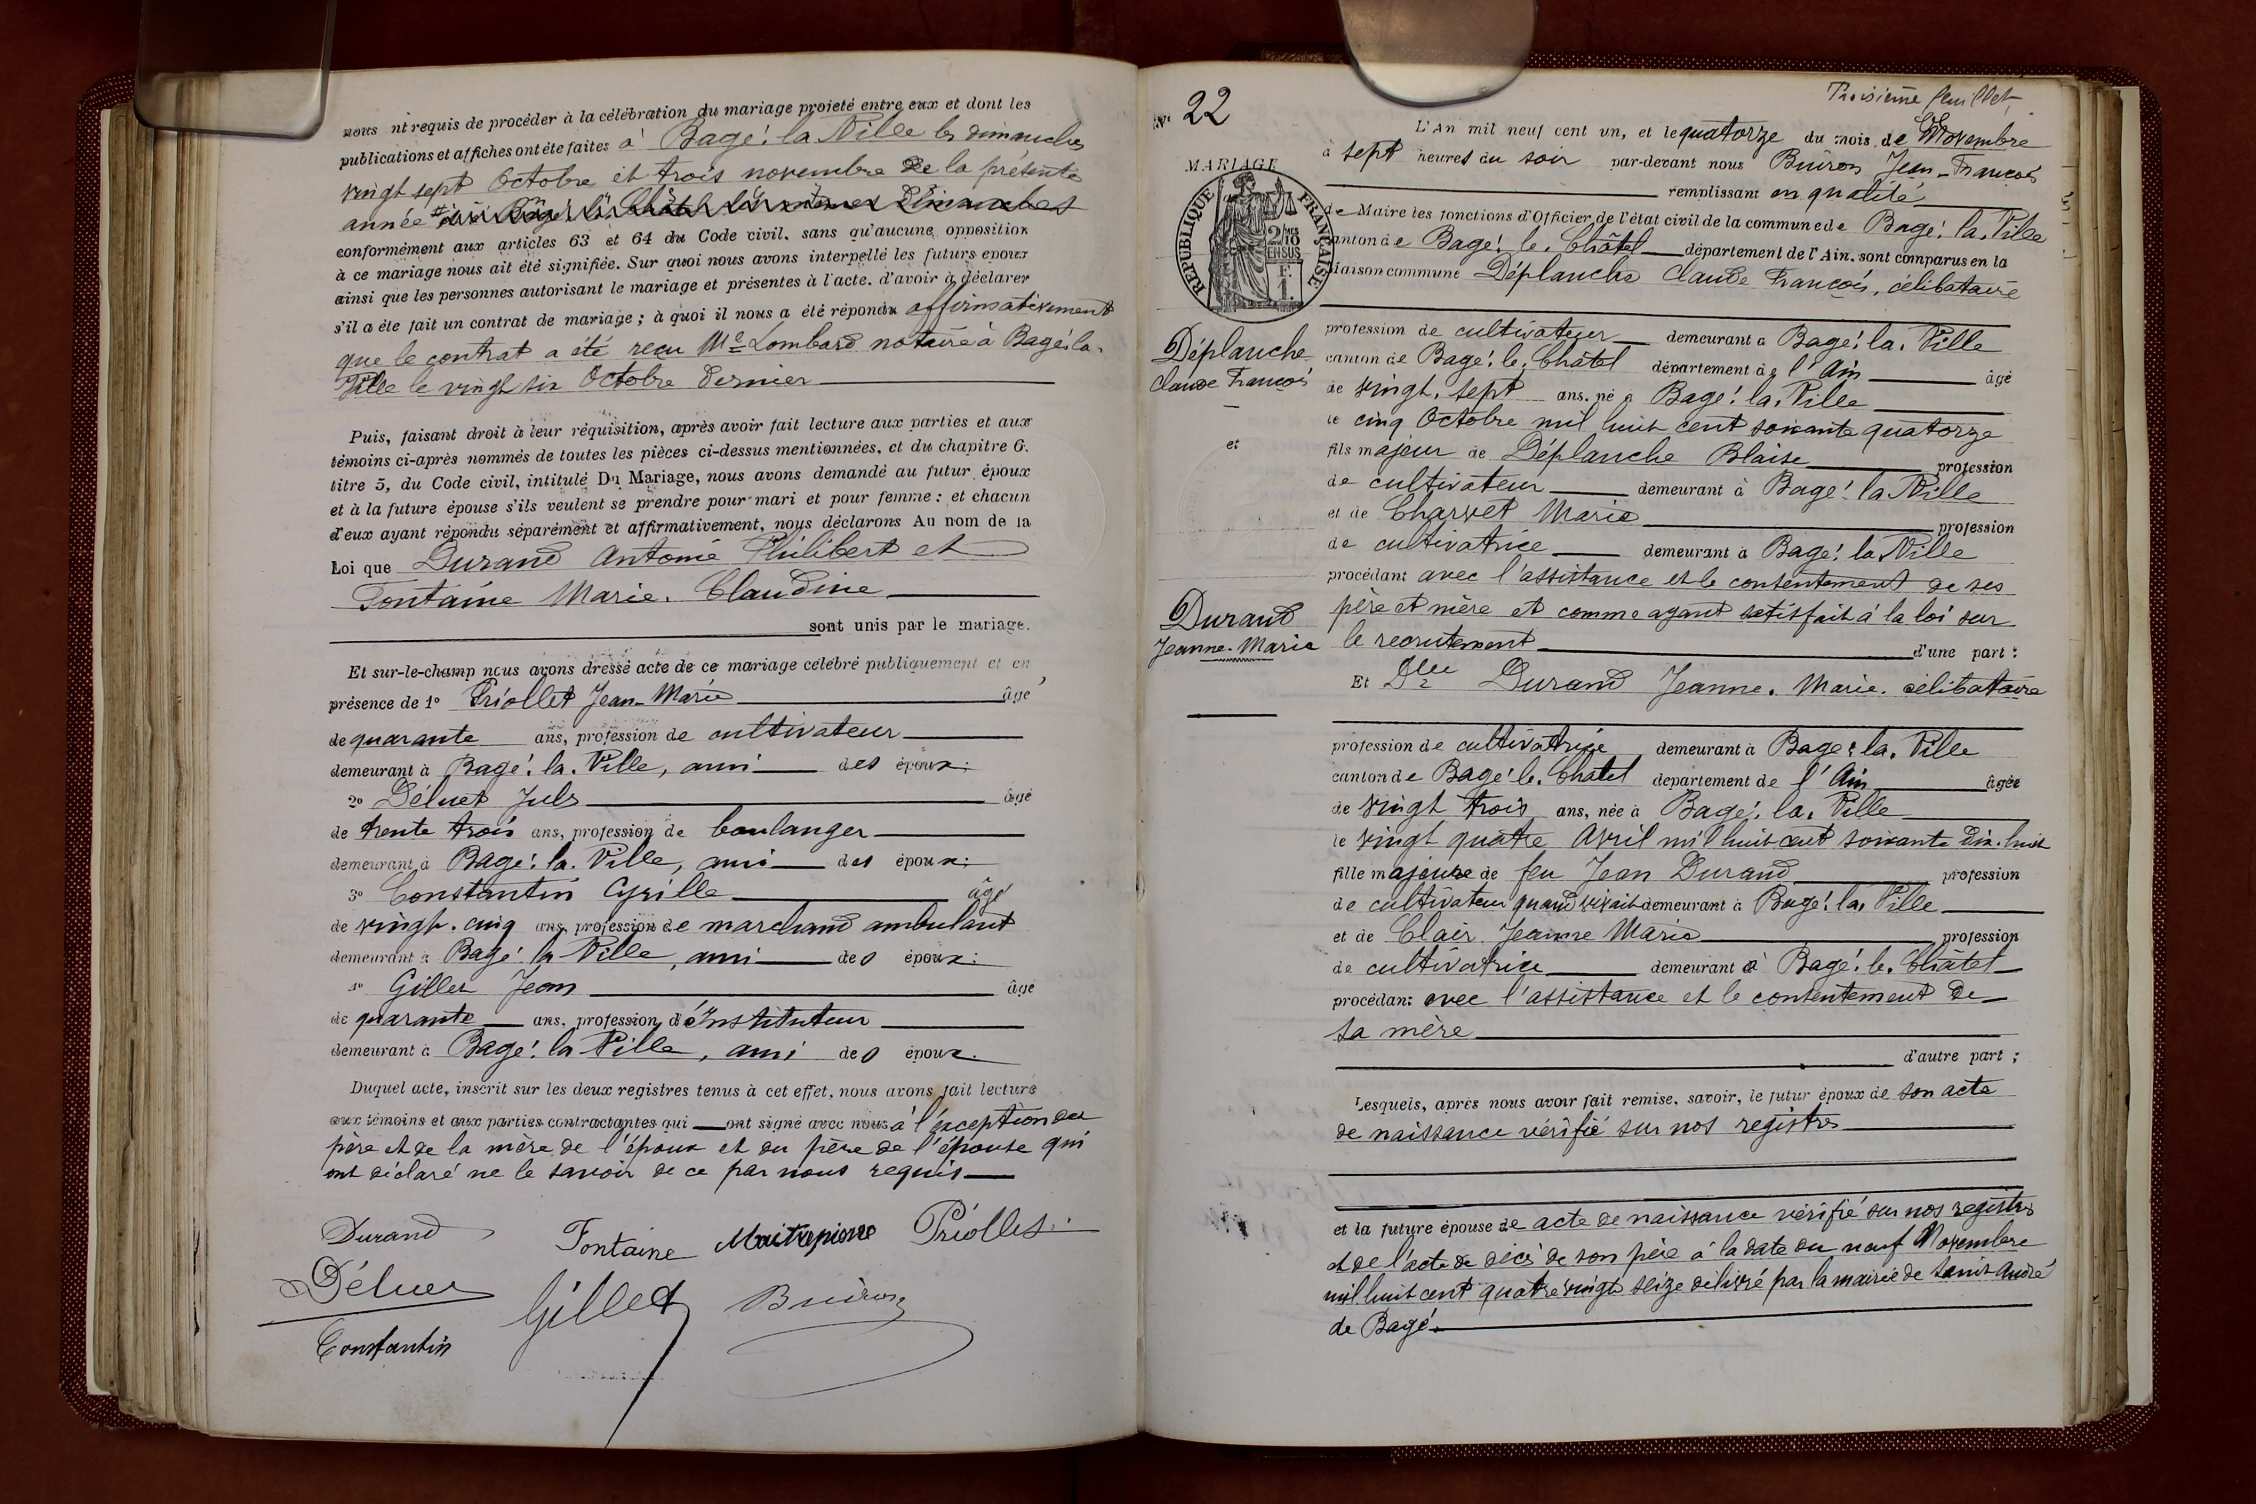 nous nt requis de procéder à la célébration du mariage projeté entre eux et dont les
publications et affiches ont été faites à Bagé-la-Ville les dimanches
vingt sept Octobre et trois novembre de la présente
année
conformément aux articles 63 et 64 du Code civil, sans qu'aucune opposition
à ce mariage nous ait été signifiée. Sur quoi nous avons interpellé les futurs époux
ainsi que les personnes autorisant le mariage et présentes à l'acte, d'avoir à déclarer
s'il a été fait un contrat de mariage ; à quoi il nous a été répondu affirmativement
que le contrat a été reçu Me Lombard notaire à Bagé-la-
Ville le vingt six Octobre dernier
Puis, faisant droit à leur réquisition, après avoir fait lecture aux parties et aux
témoins ci-après nommés de toutes les pièces ci-dessus mentionnées, et du chapitre 6.
titre 5, du Code civil, intitulé Du Mariage, nous avons demandé au futur époux
et à la future épouse s'ils veulent se prendre pour mari et pour femme : et chacun
d'eux ayant répondu séparément et affirmativement, nous déclarons Au nom de la
Loi que Durand Antoine Philibert et
Fontaine Marie-Claudine
sont unis par le mariage.
Et sur-le-champ nous avons dressé acte de ce mariage célébré publiquement et en
présence de 1° Priollet Jean-Marie âgé
de quarante ans, profession de cultivateur
demeurant à Bagé-la-Ville, ami des époux:
2° Déluet Jules âgé
de trente trois ans, profession de boulanger
demeurant à Bagé-la-Ville, ami des époux:
3° Constantin Cyrille âgé
de vingt-cinq ans, profession de marchand ambulant
demeurant à Bagé-la-Ville, ami des époux:
4° Gillet Jean âgé
de quarante ans, profession d'instituteur
demeurant à Bagé-la-Ville, ami des époux.
Duquel acte, inscrit sur les deux registres tenus à cet effet, nous avons fait lecture
aux témoins et aux parties contractantes qui ont signé avec nous à l'exception du
père et de la mère de l'époux et du père de l'épouse qui
ont déclaré ne le savoir de ce par nous requis
Durand Fontaine Maitrepierre Priollet
Déluet Gillet Buiron
Constantin
Troisième feuillet
N° 22
MARIAGE
RÉPUBLIQUE FRANÇAISE
2/10 EN SUS
F. 1.
L'An mil neuf cent un, et le quatorze du mois de Novembre
à sept heures du soir par-devant nous Buiron Jean-François
remplissant en qualité
de Maire les fonctions d'Officier de l'état civil de la commune de Bagé-la-Ville
canton de Bagé-le-Châtel département de l'Ain, sont comparus en la
Maison commune Déplanche Claude François, célibataire
Déplanche
Claude François
et
Durand
Jeanne-Marie
profession de cultivateur demeurant à Bagé-la-Ville
canton de Bagé-le-Châtel département de l'Ain âgé
de vingt-sept ans, né à Bagé-la-Ville
le cinq Octobre mil huit cent soixante quatorze
fils majeur de Déplanche Blaise profession
de cultivateur demeurant à Bagé-la-Ville
et de Charvet Marie profession
de cultivatrice demeurant à Bagé-la-Ville
procédant avec l'assistance et le consentement de ses
père et mère et comme ayant satisfait à la loi sur
le recrutement d'une part :
Et Dlle Durand Jeanne-Marie célibataire
profession de cultivatrice demeurant à Bagé-la-Ville
canton de Bagé-le-Châtel département de l'Ain âgée
de vingt trois ans, née à Bagé-la-Ville
le vingt quatre Avril mil huit cent soixante dix-huit
fille majeure de feu Jean Durand profession
de cultivateur quand vivait demeurant à Bagé-la-Ville
et de Clair Jeanne Marie profession
de cultivatrice demeurant à Bagé-le-Châtel
procédant avec l'assistance et le consentement de
sa mère
d'autre part ;
Lesquels, après nous avoir fait remise, savoir, le futur époux de son acte
de naissance vérifié sur nos registres
et la future épouse de acte de naissance vérifié sur nos registres
et de l'acte de décès de son père à la date du neuf Novembre
mil huit cent quatre vingt seize délivré par la mairie de Saint André
de Bagé.